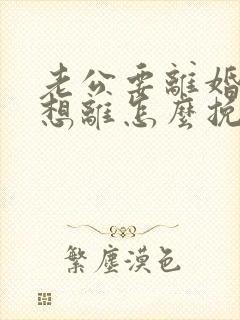 老公要離婚
想離怎麼挽
繁塵漠色